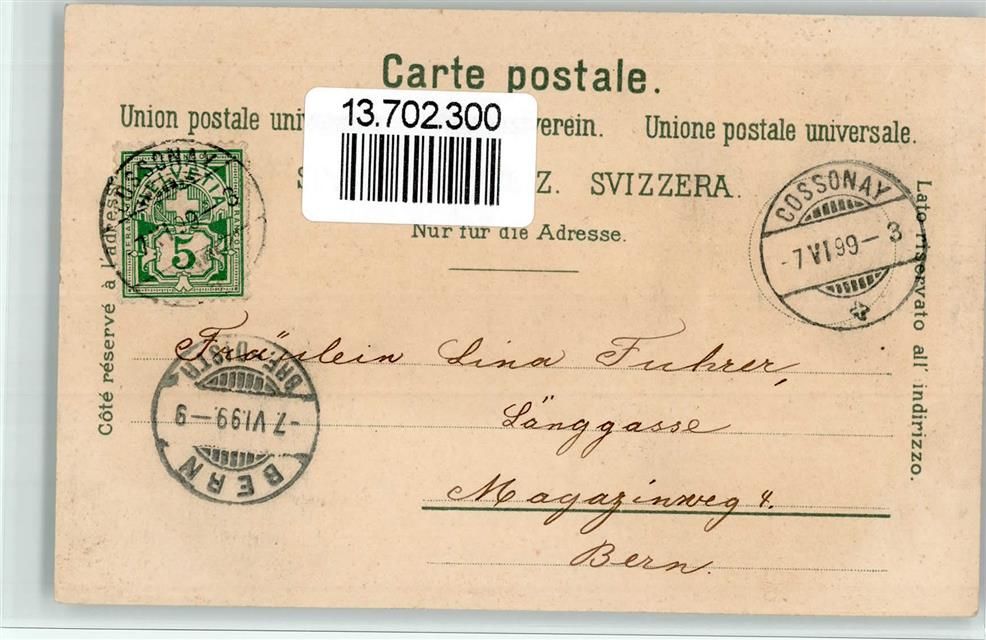 Carte postale.
13.702.300
Union postale verein. Unione postale universale.
Z. SVIZZERA.
Nur für die Adresse.
Côté réservé à l'adresse
Lato riservato all' indirizzo.
COSSONAY
HELVETIA
FRANCO
5
COSSONAY
-7 VI 99-3
BRF. DISTR.
-7. VI. 99.-9
BERN
Fräulein Lina Fuhrer,
Länggasse
Magazinweg 4.
Bern.